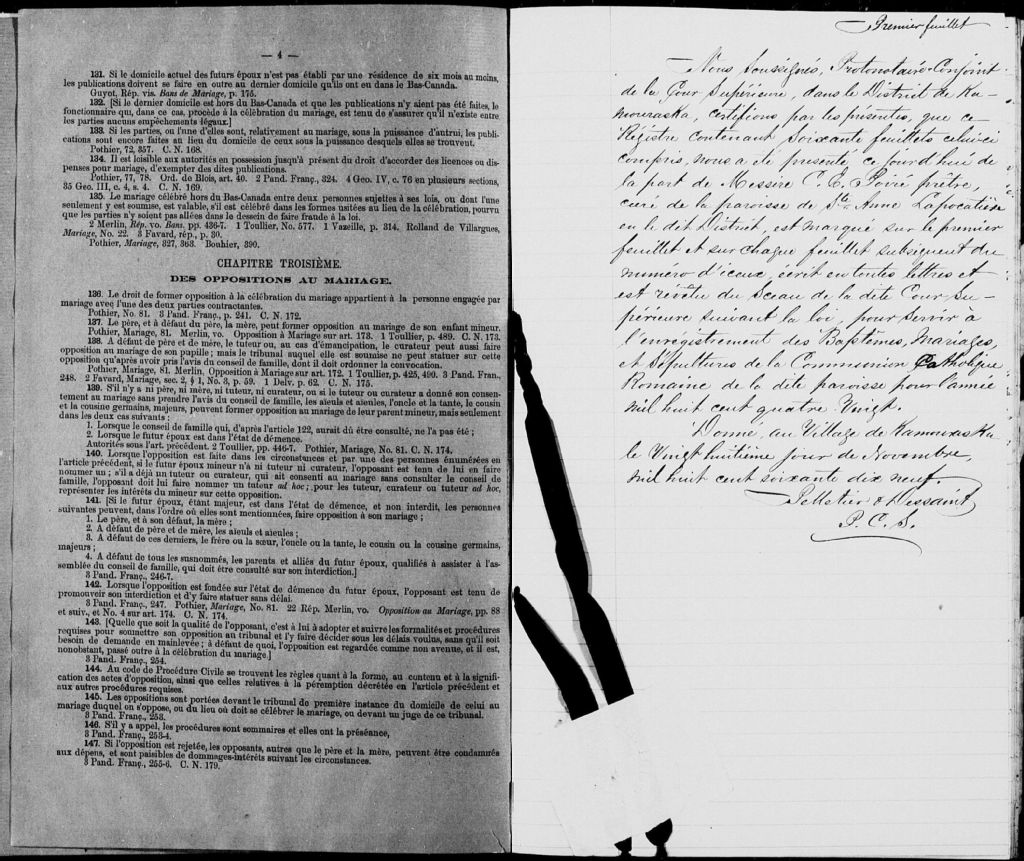 — 4 —
131. Si le domicile actuel des futurs époux n'est pas établi par une résidence de six mois au moins,
les publications doivent se faire en outre au dernier domicile qu'ils ont eu dans le Bas-Canada.
Guyot, Rép. vis. Bans de Mariage, p. 175.
132. [Si le dernier domicile est hors du Bas-Canada et que les publications n'y aient pas été faites, le
fonctionnaire qui, dans ce cas, procède à la célébration du mariage, est tenu de s'assurer qu'il n'existe entre
les parties aucuns empêchements légaux.]
133. Si les parties, ou l'une d'elles sont, relativement au mariage, sous la puissance d'autrui, les publi-
cations sont encore faites au lieu du domicile de ceux sous la puissance desquels elles se trouvent.
Pothier, 72, 357. C. N. 168.
134. Il est loisible aux autorités en possession jusqu'à présent du droit d'accorder des licences ou dis-
penses pour mariage, d'exempter des dites publications.
Pothier, 77, 78. Ord. de Blois, art. 40. 2 Pand. Franç., 324. 4 Geo. IV, c. 76 en plusieurs sections,
35 Geo. III, c. 4, s. 4. C. N. 169.
135. Le mariage célébré hors du Bas-Canada entre deux personnes sujettes à ses lois, ou dont l'une
seulement y est soumise, est valable, s'il est célébré dans les formes usitées au lieu de la célébration, pourvu
que les parties n'y soient pas allées dans le dessein de faire fraude à la loi.
2 Merlin, Rép. vo. Bans, pp. 436-7. 1 Toullier, No. 577. 1 Vazeille, p. 314. Rolland de Villargues,
Mariage, No. 22. 3 Favard, rép., p. 30.
Pothier, Mariage, 327, 363. Bouhier, 390.
CHAPITRE TROISIÈME.
DES OPPOSITIONS AU MARIAGE.
136. Le droit de former opposition à la célébration du mariage appartient à la personne engagée par
mariage avec l'une des deux parties contractantes.
Pothier, No. 81. 3 Pand. Franç., p. 241. C. N. 172.
137. Le père, et à défaut du père, la mère, peut former opposition au mariage de son enfant mineur.
Pothier, Mariage, 81. Merlin, vo. Opposition à Mariage sur art. 173. 1 Toullier, p. 489. C. N. 173.
138. A défaut de père et de mère, le tuteur ou, au cas d'émancipation, le curateur peut aussi faire
opposition au mariage de son pupille; mais le tribunal auquel elle est soumise ne peut statuer sur cette
opposition qu'après avoir pris l'avis du conseil de famille, dont il doit ordonner la convocation.
Pothier, Mariage, 81. Merlin, Opposition à Mariage sur art. 172. 1 Toullier, p. 425, 490. 3 Pand. Fran.,
248. 2 Favard, Mariage, sec. 2, § 1, No. 3, p. 59. 1 Delv. p. 62. C. N. 175.
139. S'il n'y a ni père, ni mère, ni tuteur, ni curateur, ou si le tuteur ou curateur a donné son consen-
tement au mariage sans prendre l'avis du conseil de famille, les aïeuls et aïeules, l'oncle et la tante, le cousin
et la cousine germains, majeurs, peuvent former opposition au mariage de leur parent mineur, mais seulement
dans les deux cas suivants:
1. Lorsque le conseil de famille qui, d'après l'article 122, aurait dû être consulté, ne l'a pas été;
2. Lorsque le futur époux est dans l'état de démence.
Autorités sous l'art. précédent. 2 Toullier, pp. 446-7. Pothier, Mariage, No. 81. C. N. 174.
140. Lorsque l'opposition est faite dans les circonstances et par une des personnes énumérées en
l'article précédent, si le futur époux mineur n'a ni tuteur ni curateur, l'opposant est tenu de lui en faire
nommer un; s'il a déjà un tuteur ou curateur, qui ait consenti au mariage sans consulter le conseil de
famille, l'opposant doit lui faire nommer un tuteur ad hoc; pour les tuteur, curateur ou tuteur ad hoc,
représenter les intérêts du mineur sur cette opposition.
141. [Si le futur époux, étant majeur, est dans l'état de démence, et non interdit, les personnes
suivantes peuvent, dans l'ordre où elles sont mentionnées, faire opposition à son mariage;
1. Le père, et à son défaut, la mère;
2. A défaut de père et de mère, les aïeuls et aïeules;
3. A défaut de ces derniers, le frère ou la sœur, l'oncle ou la tante, le cousin ou la cousine germains,
majeurs;
4. A défaut de tous les susnommés, les parents et alliés du futur époux, qualifiés à assister à l'as-
semblée du conseil de famille, qui doit être consulté sur son interdiction.]
3 Pand. Franç., 246-7.
142. Lorsque l'opposition est fondée sur l'état de démence du futur époux, l'opposant est tenu de
promouvoir son interdiction et d'y faire statuer sans délai.
3 Pand. Franç., 247. Pothier, Mariage, No. 81. 22 Rép. Merlin, vo. Opposition au Mariage, pp. 88
et suiv., et No. 4 sur art. 174. C. N. 174.
143. [Quelle que soit la qualité de l'opposant, c'est à lui à adopter et suivre les formalités et procédures
requises pour soumettre son opposition au tribunal et l'y faire décider sous les délais voulus, sans qu'il soit
besoin de demande en mainlevée; à défaut de quoi, l'opposition est regardée comme non avenue, et il est,
nonobstant, passé outre à la célébration du mariage.]
3 Pand. Franç., 254.
144. Au code de Procédure Civile se trouvent les règles quant à la forme, au contenu et à la signifi-
cation des actes d'opposition, ainsi que celles relatives à la péremption décrétée en l'article précédent et
aux autres procédures requises.
145. Les oppositions sont portées devant le tribunal de première instance du domicile de celui au
mariage duquel on s'oppose, ou du lieu où doit se célébrer le mariage, ou devant un juge de ce tribunal.
3 Pand. Franç., 253.
146. S'il y a appel, les procédures sont sommaires et elles ont la préséance,
3 Pand. Franç., 253-4.
147. Si l'opposition est rejetée, les opposants, autres que le père et la mère, peuvent être condamnés
aux dépens, et sont paisibles de dommages-intérêts suivant les circonstances.
3 Pand. Franç., 255-6. C. N. 179.
Premier feuillet
Nous Soussignés, Protonotaire-Conjoint
de la Cour Supérieure, dans le District de Ka-
mouraska, certifions par les présentes, que ce
Régistre contenant Soixante feuillets celui-ci
compris, nous a été présenté ce jourd'hui de
la part de Messire C. E. Poiré prêtre,
curé de la paroisse de Ste Anne Lapocatière
en le dit District, est marqué sur le premier
feuillet et sur chaque feuillet subséquent du
numéro d'iceux, écrit en toutes lettres et
est révêtu du Sceau de la dite Cour Su-
périeure suivant la loi, pour servir à
l'enregistrement des Baptêmes, Mariages,
et Sépultures de la Communion Catholique
Romaine de la dite paroisse pour l'année
mil huit cent quatre Vingt.
Donné, au Village de Kamouraska
le Vingt huitième jour de Novembre,
mil huit cent soixante dix neuf.
Pelletier & Dessaint
P. C. S.